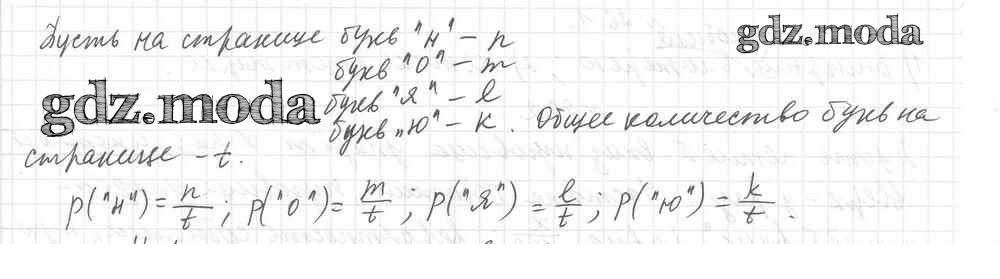 Пусть на странице букв "н" – n
gdz.moda
букв "о" – m
gdz.moda
букв "я" – l
букв "ю" – k. Общее количество букв на
странице – t.
p("н") = n/t; p("о") = m/t; p("я") = l/t; p("ю") = k/t.